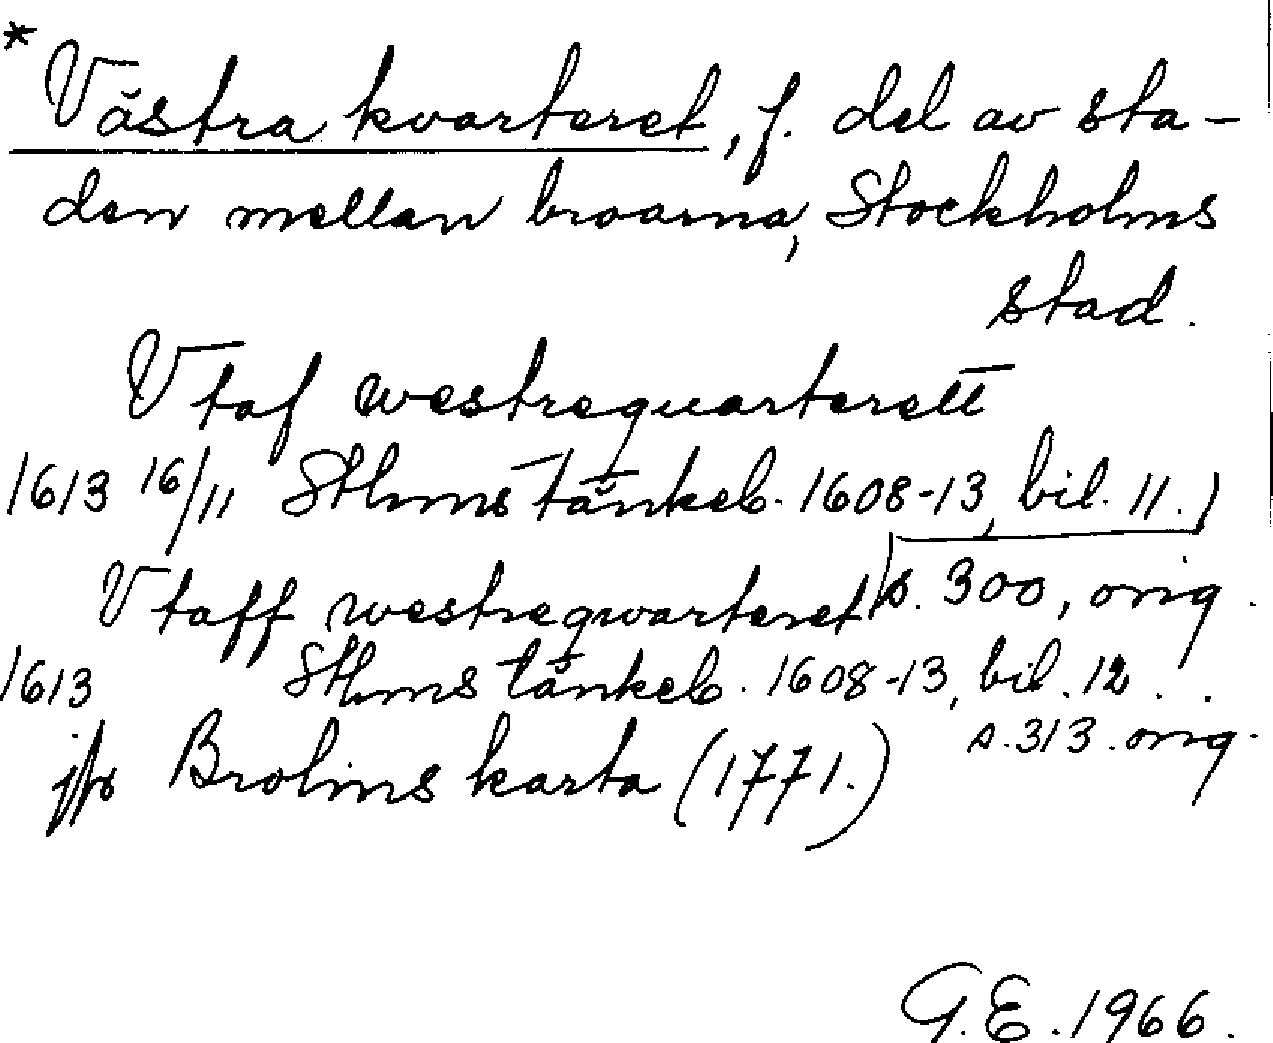 * Västra kvarteret, f. del av sta-
den mellan broarna, Stockholms
stad.
Vtaf westrequarterett
1613 16/11 Sthms tänkeb. 1608-13, bil. 11.
s. 300, orig.
Vtaff westreqwarteret
1613 Sthms tänkeb. 1608-13, bil. 12.
s. 313. orig.
jfr Brolins karta (1771.)
G.E. 1966.